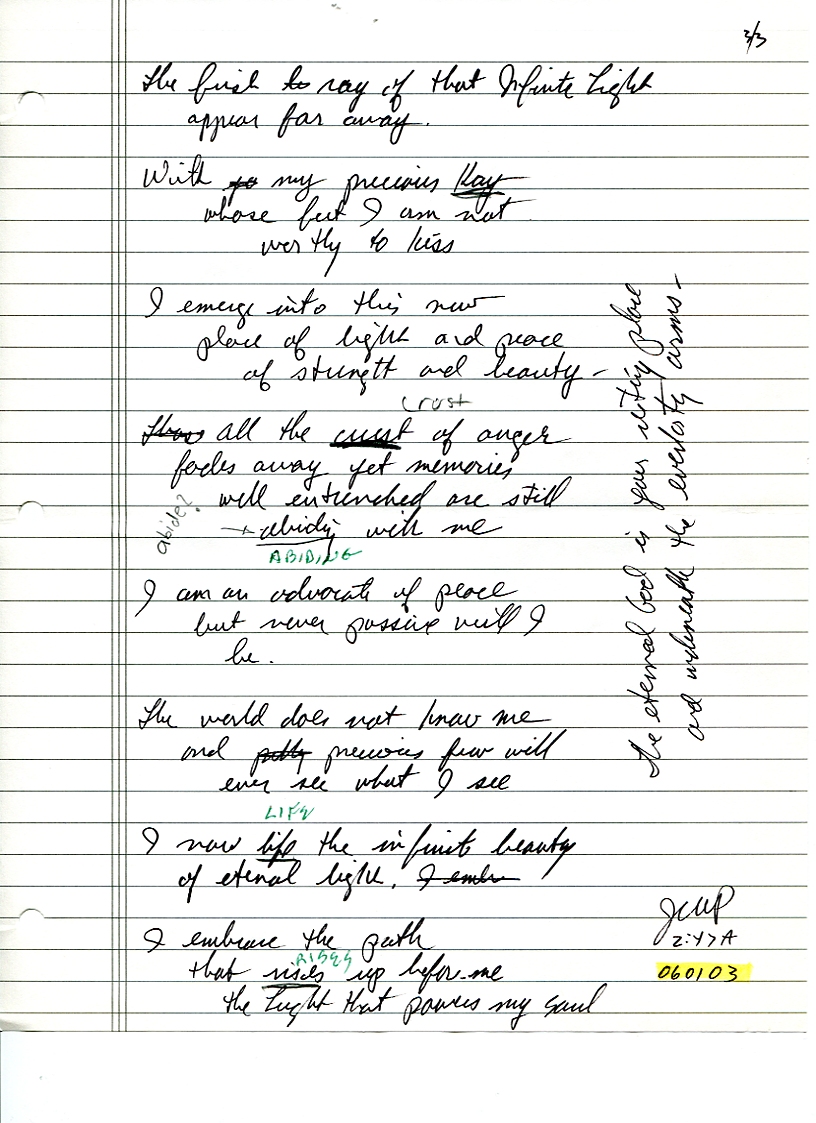 3/3
The first to ray of that Infinite Light
appear far away.
With yo my precious Kay
whose feet I am not
worthy to kiss
I emerge into this new
place of light and peace
of strength and beauty -
crust
Thus all the crust of anger
fades away yet memories
well entrenched are still
abide?
abiding with me
ABIDING
I am an advocate of peace
but never passive will I
be.
The world does not know me
and precious few will
ever see what I see
LIFE
I now life the infinite beauty
of eternal light. I embr
I embrace the path
RISES
that rises up before me
the Light that powers my soul
JCMP
2:47A
060103
the eternal God is your resting place
and underneath the everlasting arms -